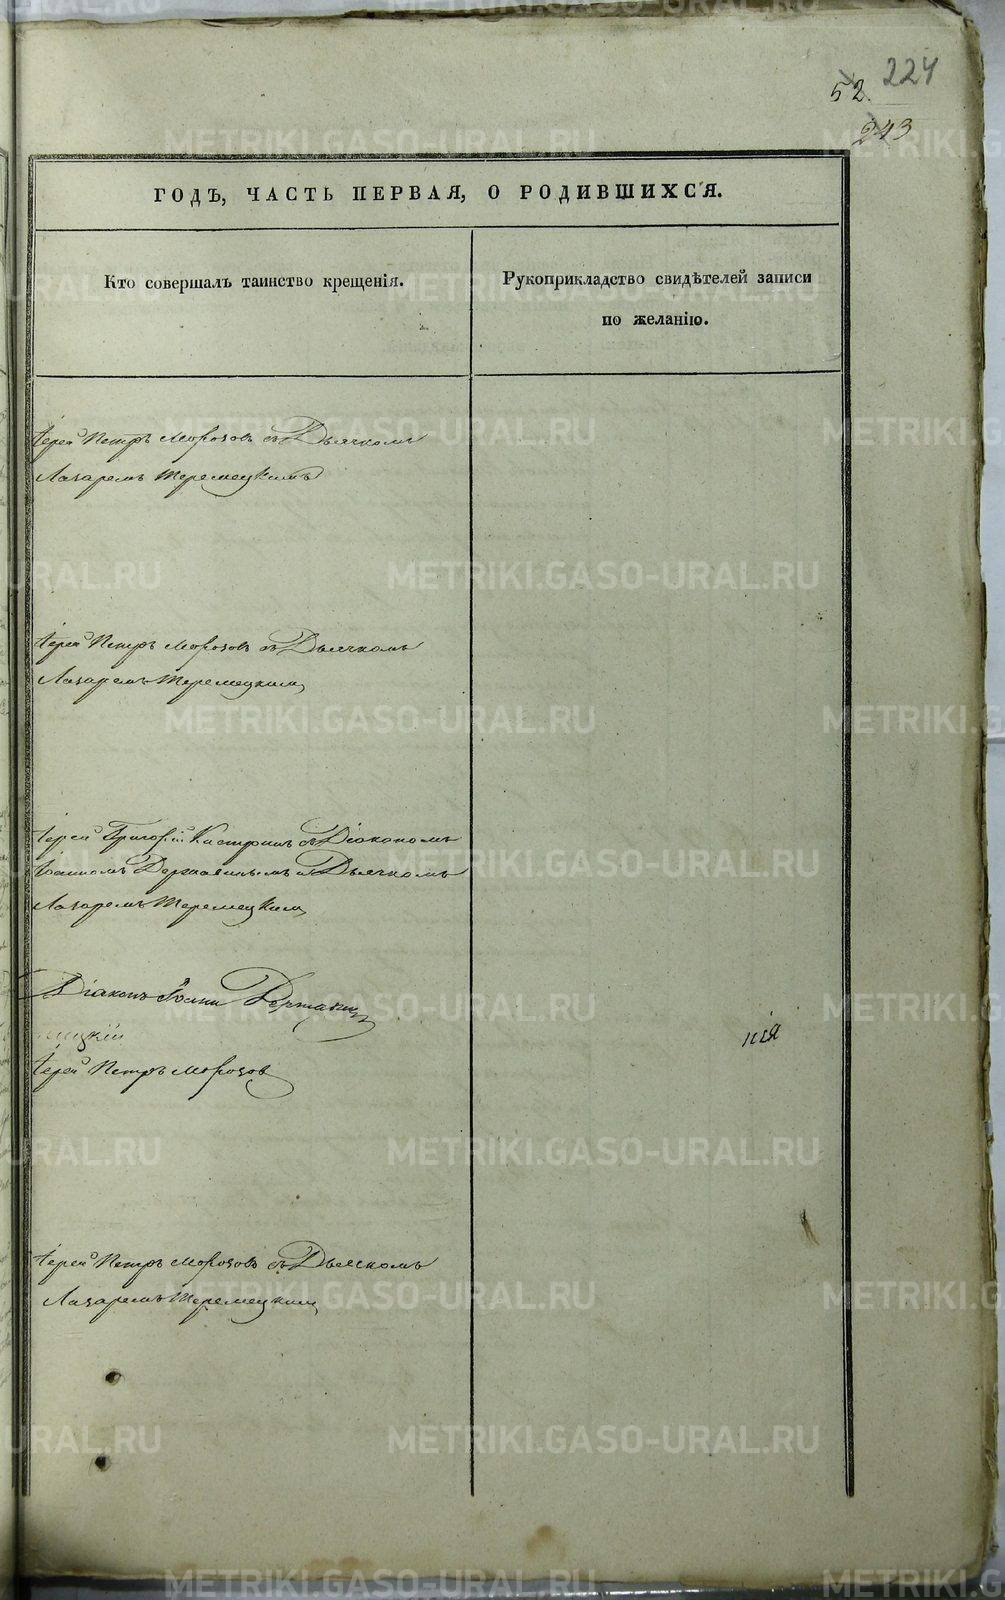 52. 224
243
ГОДЪ, ЧАСТЬ ПЕРВАЯ, О РОДИВШИХСЯ.
Кто совершалъ таинство крещенія.
Рукоприкладство свидѣтелей записи
по желанію.
Іерей Петръ Морозовъ съ Дьячкомъ
Лазаремъ Теремецкимъ
Іерей Петръ Морозовъ съ Дьячкомъ
Лазаремъ Теремецкимъ
Іерей Григорій съ Діакономъ
Іоанномъ Державинымъ и Дьячкомъ
Лазаремъ Теремецкимъ
Діаконъ Іоаннъ Державинъ
нія
Іерей Петръ Морозовъ
Іерей Петръ Морозовъ съ Дьячкомъ
Лазаремъ Теремецкимъ
METRIKI.GASO-URAL.RU